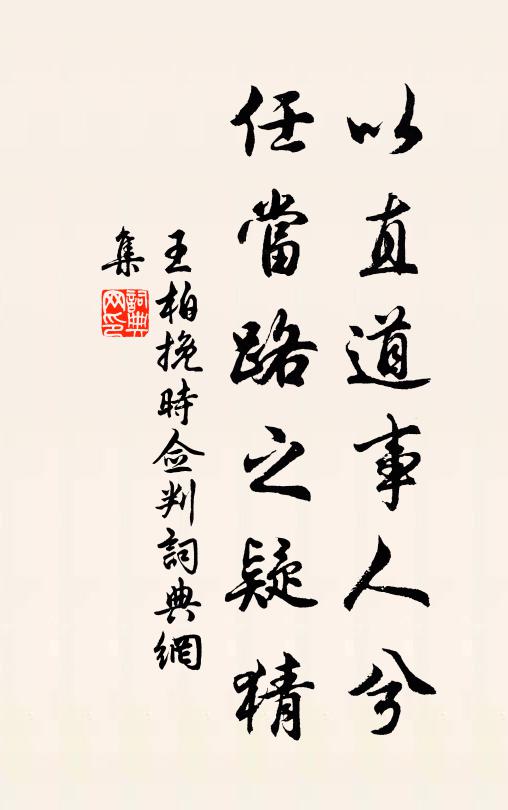 以直道事人兮
任當路之疑猜
王柏挽時僉判詞典網
集
詞典
网印